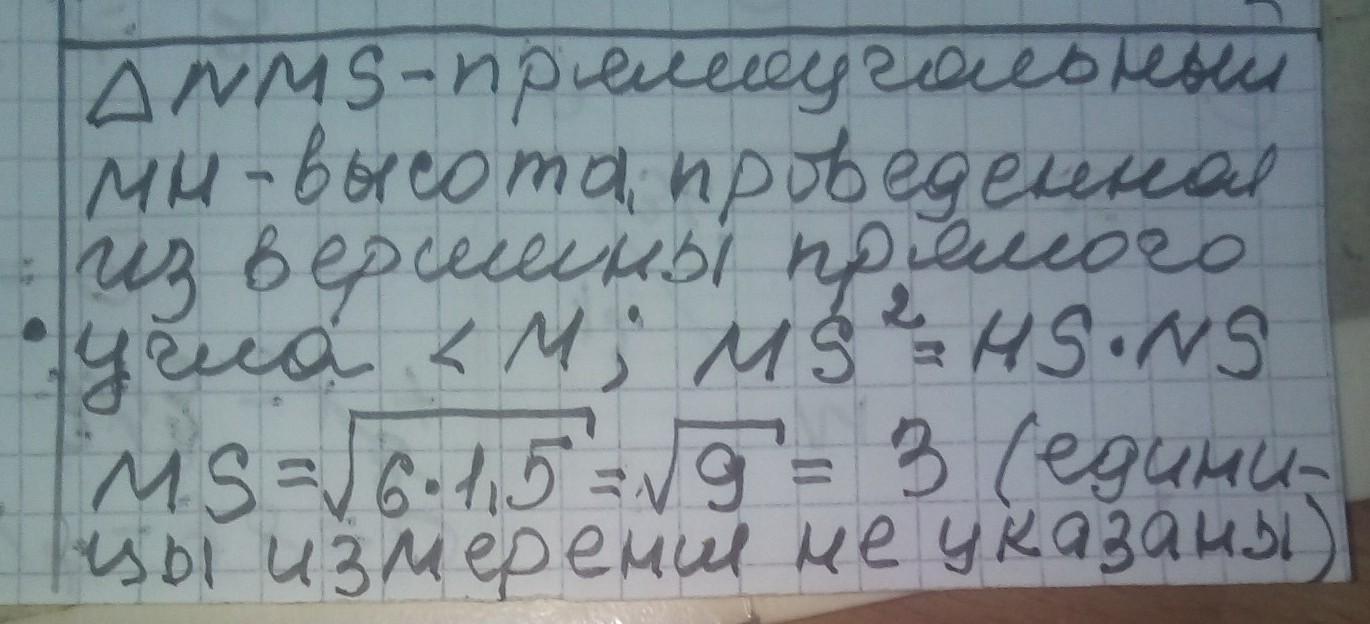 △NMS-прямоугольный
MH-высота, проведенная
из вершины прямого
угла < M; MS² = HS·NS
MS = √6·1,5 = √9 = 3 (едини-
цы измерения не указаны)